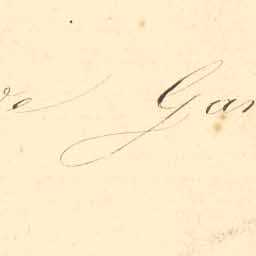 de Gar